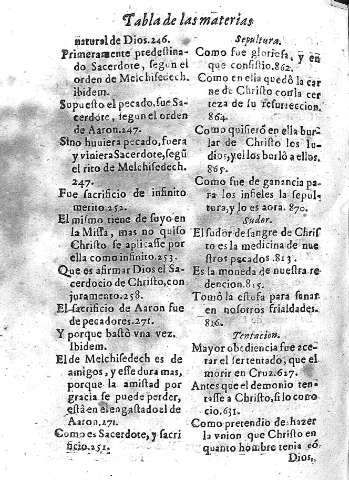 Tabla de las materias
natural de Dios.246.
Primeramente predestina-
do Sacerdote, segun el
orden de Melchisedech.
ibidem.
Supuesto el pecado, fue Sa-
cerdote, segun el orden
de Aaron.247.
Sino huuiera pecado, fuera
y viniera Sacerdote, segũ
el rito de Melchisedech.
247.
Fue sacrificio de infinito
merito.252.
El mismo tiene de suyo en
la Missa, mas no quiso
Christo se aplicasse por
ella como infinito.253.
Que es afirmar Dios el Sa-
cerdocio de Christo, con
juramento.258.
El sacrificio de Aaron fue
de pecadores.271.
Y porque bastò vna vez.
Ibidem.
El de Melchisedech es de
amigos, y esse dura mas,
porque la amistad por
gracia se puede perder,
està en el engastado el de
Aaron.271.
Como es Sacerdote, y sacri
ficio.251.
Sepultura.
Como fue gloriosa, y en
que consistio.862.
Como en ella quedò la car
ne de Christo con la cer
teza de su resurreccion.
864.
Como quisierõ en ella bur
lar de Christo los Iu-
dios, y el los burlò a ellos.
865.
Como fue de ganancia pa
ra los infieles la sepul-
tura, y lo es aora.870.
Sudor.
El sudor de sangre de Chris
to es la medicina de nue
stros pecados.813.
Es la moneda de nuestra re
dencion.815.
Tomò la estufa para sanar
en nosotros frialdades.
816.
Tentacion.
Mayor obediencia fue ace-
tar el ser tentado, que el
morir en Cruz.627.
Antes que el demonio ten-
tasse a Christo, si lo cono
cio.631.
Como pretendio deshazer
la vnion que Christo en
quanto hombre tenia cõ
Dios,